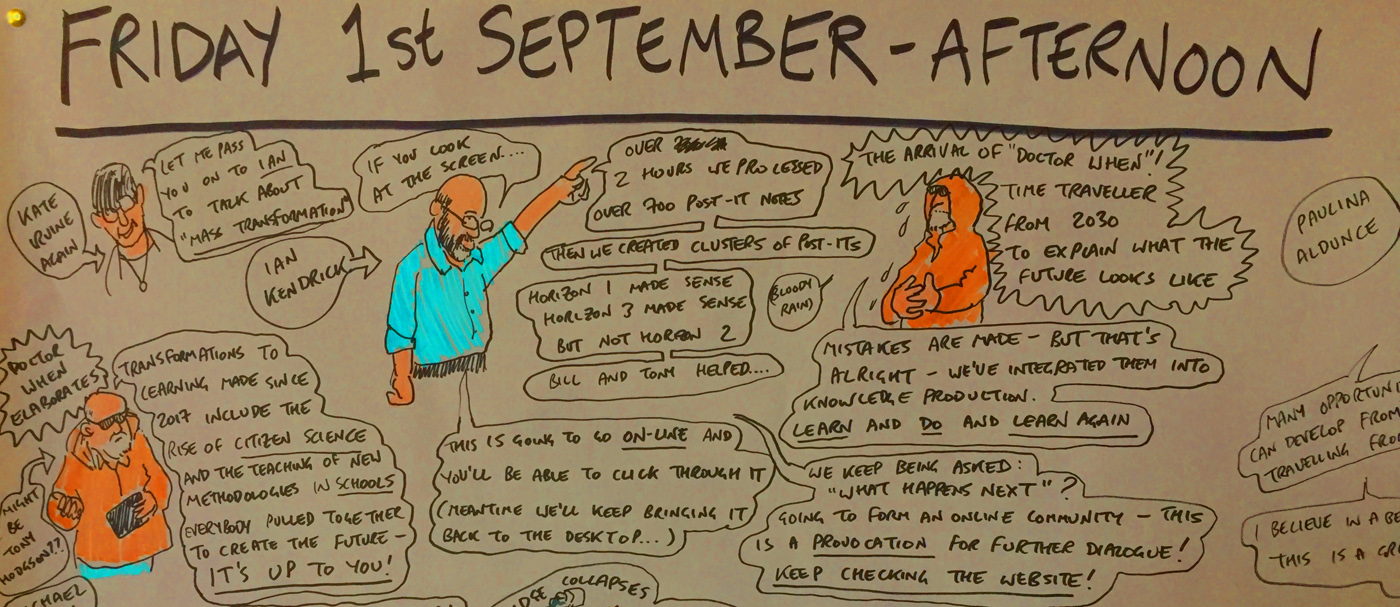 FRIDAY 1st SEPTEMBER - AFTERNOON
KATE
IRVINE
AGAIN
LET ME PASS
YOU ON TO IAN
TO TALK ABOUT
"MASS TRANSFORMATION"
IAN
KENDRICK
IF YOU LOOK
AT THE SCREEN....
OVER
2 HOURS WE PROCESSED
OVER 700 POST-IT NOTES
THEN WE CREATED CLUSTERS OF POST-ITS
HORIZON 1 MADE SENSE
HORIZON 3 MADE SENSE
BUT NOT HORIZON 2
BILL AND TONY HELPED....
THIS IS GOING TO GO ON-LINE AND
YOU'LL BE ABLE TO CLICK THROUGH IT
(MEANTIME WE'LL KEEP BRINGING IT
BACK TO THE DESKTOP...)
WE KEEP BEING ASKED:
"WHAT HAPPENS NEXT"?
GOING TO FORM AN ONLINE COMMUNITY - THIS
IS A PROVOCATION FOR FURTHER DIALOGUE!
KEEP CHECKING THE WEBSITE!
THE ARRIVAL OF "DOCTOR WHEN"!
TIME TRAVELLER
FROM 2030
TO EXPLAIN WHAT THE
FUTURE LOOKS LIKE
(BLOODY
RAIN)
MISTAKES ARE MADE - BUT THAT'S
ALRIGHT - WE'VE INTEGRATED THEM INTO
KNOWLEDGE PRODUCTION.
LEARN AND DO AND LEARN AGAIN
DOCTOR
WHEN
ELABORATES
MIGHT
BE
TONY
HODGSON??
TRANSFORMATIONS TO
LEARNING MADE SINCE
2017 INCLUDE THE
RISE OF CITIZEN SCIENCE
AND THE TEACHING OF NEW
METHODOLOGIES IN SCHOOLS
EVERYBODY PULLED TOGETHER
TO CREATE THE FUTURE -
IT'S UP TO YOU!
PAULINA
ALDUNCE
MANY OPPORTUNI
CAN DEVELOP FROM
TRAVELLING FRO
I BELIEVE IN A BE
THIS IS A GR
COLLAPSES